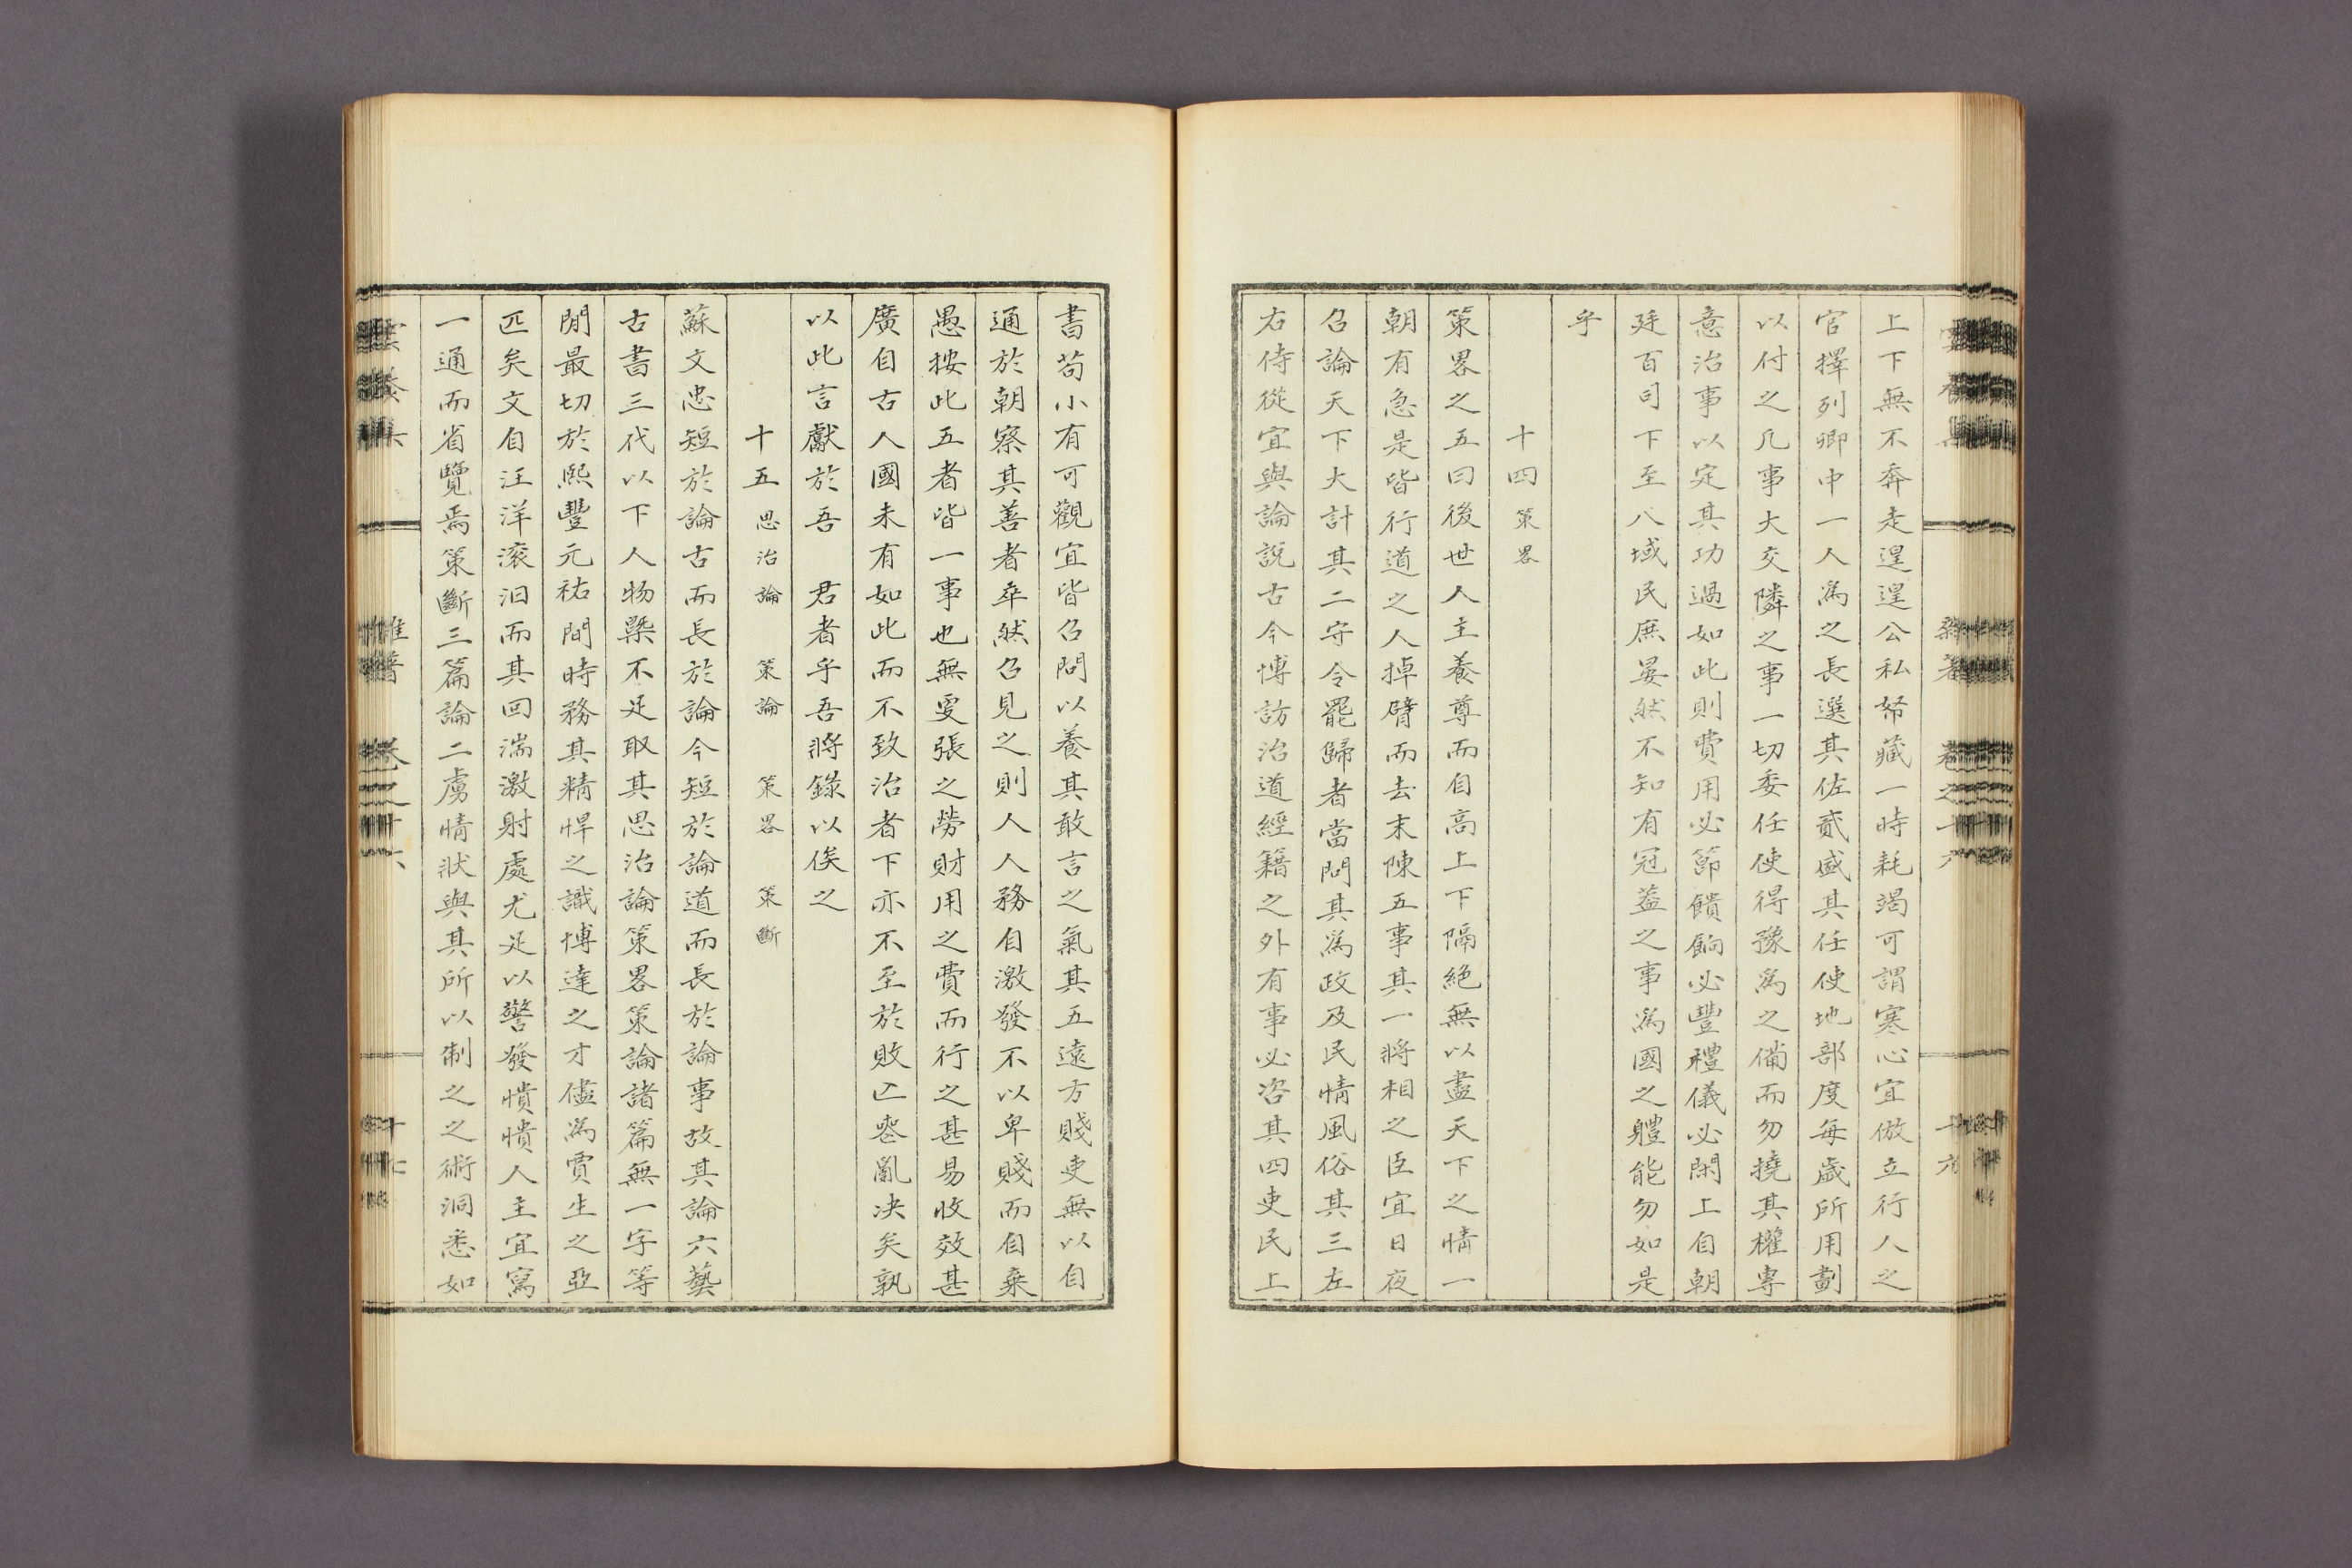 上下無不奔走遑遑公私帑藏一時耗竭可謂寒心宜倣立行人之
官擇列卿中一人爲之長選其佐貳盛其任使地部度每歲所用劃
以付之凡事大交隣之事一切委任使得豫爲之備而勿撓其權專
意治事以定其功過如此則費用必節饋餉必豐禮儀必閑上自朝
廷百司下至八域民庶晏然不知有冠蓋之事爲國之軆能勿如是
乎
十四 策畧
策畧之五曰後世人主養尊而自高上下隔絶無以盡天下之情一
朝有急是皆行道之人掉臂而去末陳五事其一將相之臣宜日夜
召論天下大計其二守令罷歸者當問其爲政及民情風俗其三左
右侍從宜與論説古今博訪治道經籍之外有事必咨其四吏民上
書苟小有可觀宜皆召問以養其敢言之氣其五遠方賤吏無以自
通於朝察其善者卒然召見之則人人務自激發不以卑賤而自棄
愚按此五者皆一事也無更張之勞財用之費而行之甚易收效甚
廣自古人國未有如此而不致治者下亦不至於敗亡喪亂决矣孰
以此言獻於吾 君者乎吾將錄以俟之
十五 思治論 策論 策畧 策斷
蘇文忠短於論古而長於論今短於論道而長於論事故其論六藝
古書三代以下人物槩不足取其思治論策畧策論諸篇無一字等
閒最切於熙豐元祐間時務其精悍之識博達之才儘爲賈生之亞
匹矣文自汪洋滚汩而其回湍激射處尤足以警發憒憒人主宜寫
一通而省覽焉策斷三篇論二虜情狀與其所以制之之術洞悉如
卷之十六